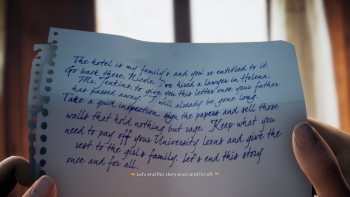 The hotel is my family's and you're entitled to it.
Go back there, Nicole. I've hired a lawyer in Helena,
Mr. Jenkins to give you this letter once your father
has passed away. I will already be gone long.
Take a guid inspection, sign the papers and sell those
walls that hold nothing but rage. Keep what you
need to pay off your University loans and give the
rest to the girl's family. Let's end this story
once and for all.
Let's end this story once and for all.